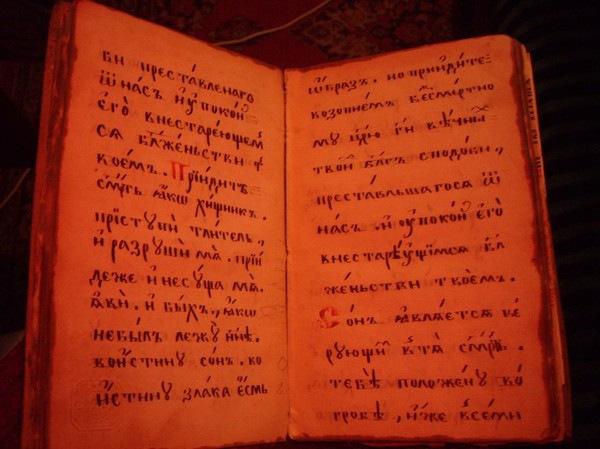 ви преста́вленаго
ѿ на́съ и҆ ᲂу҆поко́й
є҆го̀ внестарѣ́ющем
сѧ бл҃же́ньстви т
кое́мъ. Прїиди́тъ
сме́рть ꙗ҆́кѡ хи́щникъ.
пристꙋпѝ тлѝтель,
и҆ разрꙋшѝ мѧ̀. прїи
де́же и҆ несꙋ́ща мѧ̀.
ꙗ҆ви. и҆ бы́хъ, ꙗ҆́кѡ
небы́лъ лежꙋ̀ ны́нѣ.
вои́стинꙋ со́нъ. во
и́стинꙋ зла́ка є҆́смь
ѡ҆́бразъ. но прїиди́те
возопїе́мъ бе́смертно
мꙋ цр҃ю̀ гдⷭ҇и вѣ́чны
твои́ бла́гъ сподо́би,
преста́вльшагосѧ ѿ
на́съ. и҆ ᲂу҆поко́й є҆го̀
внестарѣ́ющїимсѧ бл
же́ньстви твое́мъ.
Со́нъ ꙗ҆влѧ́етсѧ вѣ́
рꙋющи́ втѧ̀ сме́рть.
тебѣ̀ положе́нꙋ во
гро́бѣ, и҆́же все́ми